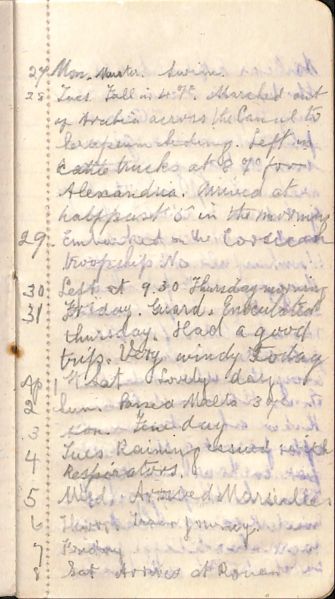 27 Mon. Muster. Swim.
28 Tues. Fall in 4 7. Marched out
of Arabia across the Canal to
European siding. Left in
cattle trucks at 8 for
Alexandria. Arrived at
half past 5 in the morning
29 Embarked on the Corsican
troopship No
30 Left at 9.30 Thursday morning
31 Friday. Guard. Enoculated
thursday. Had a good
trip. Very windy today
Ap 1st Sat Lovely day
2 Sun. Passed Malta 3
3 Mon. Fine day
4 Tues Raining issued with
Respirators.
5 Wed. Arrived Marseilles
6 Thurs. Train journey.
7 Friday
8 Sat Arrived at Rouen